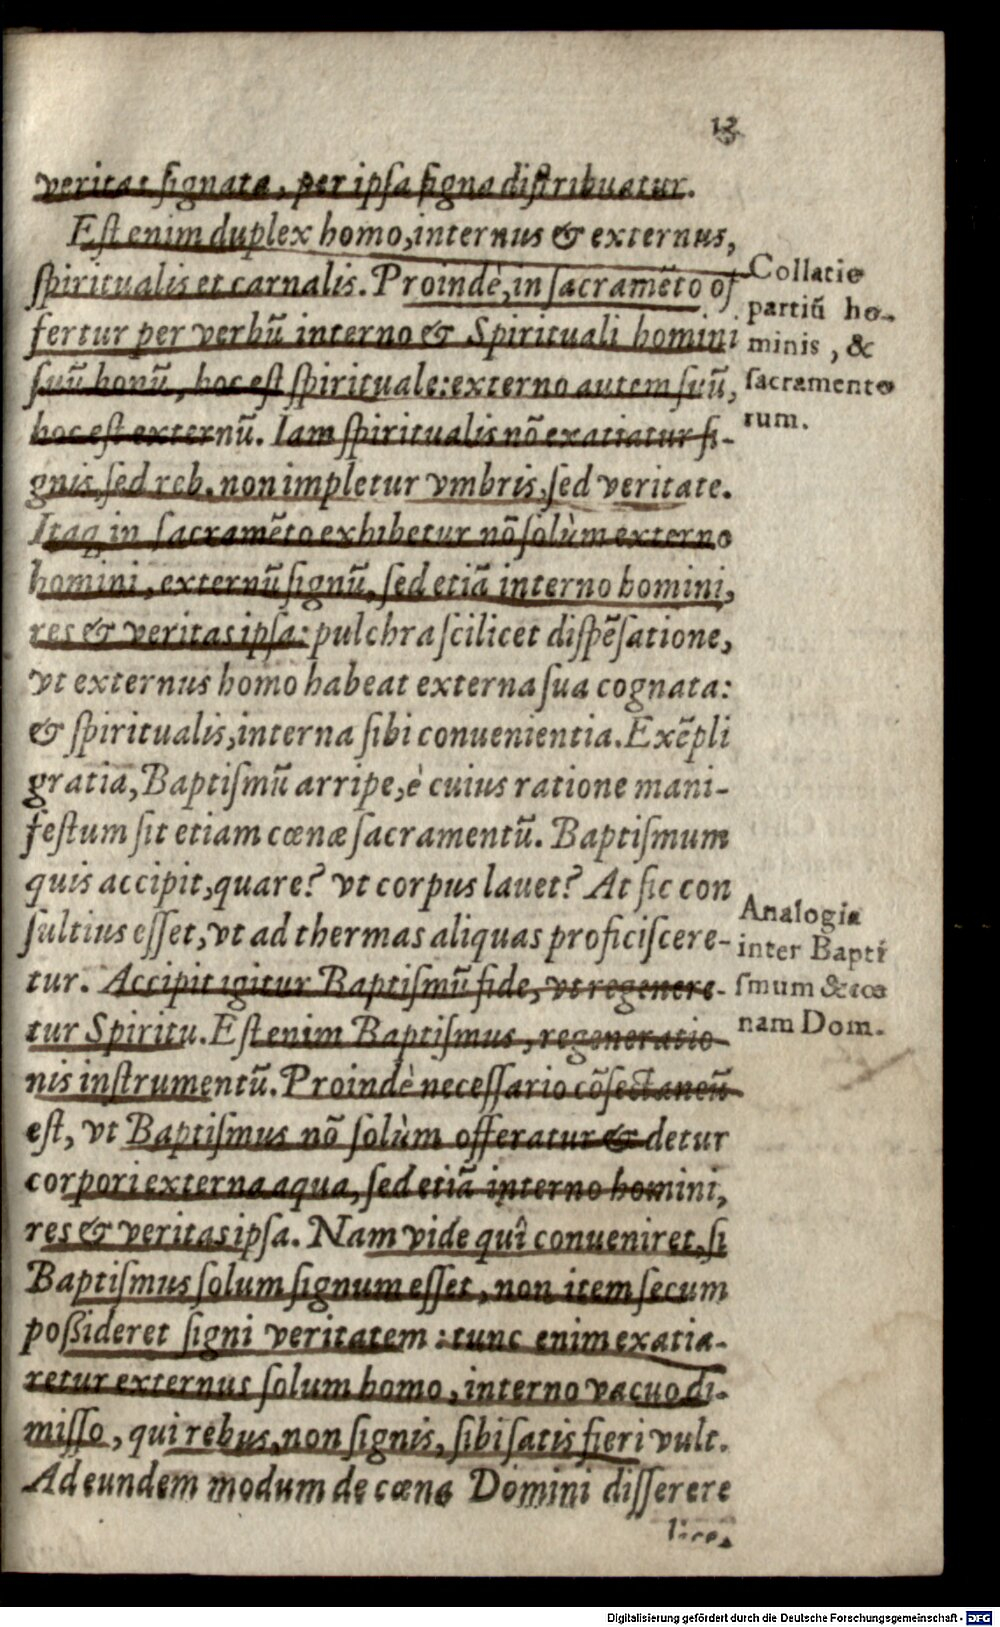 13
veritas signata, per ipsa signa distribuatur.
Est enim duplex homo, internus & externus,
spiritualis et carnalis. Proindè, in sacramẽto of
fertur per verbũ interno & Spirituali homini
suũ bonũ, hoc est spirituale: externo autem suũ,
hoc est externũ. Iam spiritualis nõ exatiatur si-
gnis, sed reb. non impletur vmbris, sed veritate.
Itaq in sacramẽto exhibetur nõ solùm externo
homini, externũ signũ, sed etiã interno homini,
res & veritas ipsa: pulchra scilicet dispẽsatione,
vt externus homo habeat externa sua cognata:
& spiritualis, interna sibi conuenientia. Exẽpli
gratia, Baptismũ arripe, è cuius ratione mani-
festum sit etiam cœnæ sacramentũ. Baptismum
quis accipit, quare? vt corpus lauet? At sic con
sultius esset, vt ad thermas aliquas proficiscere-
tur. Accipit igitur Baptismũ fide, vt regenere-
tur Spiritu. Est enim Baptismus, regeneratio-
nis instrumentũ. Proindè necessario cõsectaneũ
est, vt Baptismus nõ solùm offeratur & detur
corpori externa aqua, sed etiã interno homini,
res & veritas ipsa. Nam vide quî conueniret, si
Baptismus solum signum esset, non item secum
possideret signi veritatem: tunc enim exatia-
retur externus solum homo, interno vacuo di-
misso, qui rebus, non signis, sibi satis fieri vult.
Ad eundem modum de cœna Domini disserere
Collatio
partiũ ho-
minis, &
sacramento
rum.
Analogia
inter Bapti
smum & cœ
nam Dom.
Digitalisierung gefördert durch die Deutsche Forschungsgemeinschaft - DFG